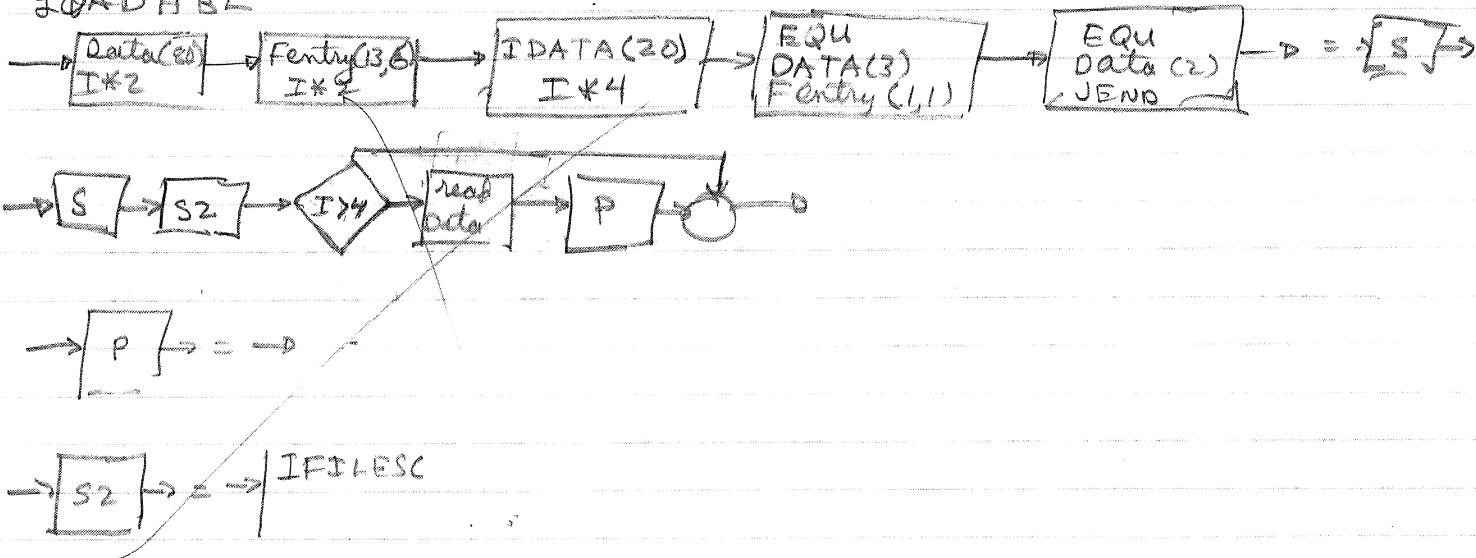 LOADABL
Data(80)
I*2
Fentry(13,6)
I*2
IDATA(20)
I*4
EQU
DATA(3)
Fentry(1,1)
EQU
Data(2)
JEND
= S
S
S2
I>4
read
Data
P
P =
S2 = IFILESC